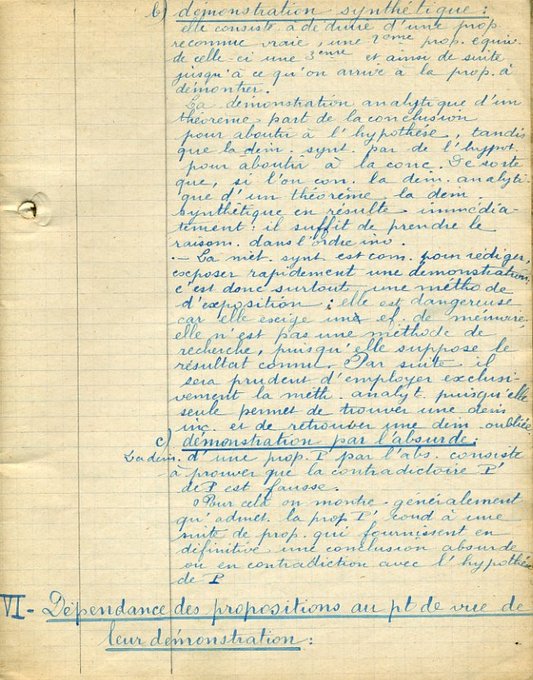 b) démonstration synthétique :
elle consiste à déduire d'une prop.
reconnue vraie, une 2ème prop. équiv.
de celle-ci une 3ème et ainsi de suite
jusqu'à ce qu'on arrive à la prop. à
démontrer.
La démonstration analytique d'un
théorème part de la conclusion
pour aboutir à l'hypothèse, tandis
que la dém. synt. par de l'hypot.
pour aboutir à la conc. De sorte
que, si l'on con. la dém. analyti-
que d'un théorème la dem.
synthétique en résulte immédia-
tement : il suffit de prendre le
raison. dans l'ordre inv.
- La mét. synt est com. pour rédiger,
exposer rapidement une démonstration,
c'est donc surtout une méthode
d'exposition ; elle est dangereuse
car elle exige un ef. de mémoire,
elle n'est pas une méthode de
recherche, puisqu'elle suppose le
résultat connu. Par suite il
sera prudent d'employer exclusi-
vement la méth. analyt. puisqu'elle
seule permet de trouver une dem
inc. et de retrouver une dem. oubliée.
c) démonstration par l'absurde :
La dém. d'une prop. P par l'abs. consiste
à prouver que la contradictoire P'
de P est fausse.
Pour cela on montre généralement
qu'admet. la prop P' cond à une
suite de prop. qui fournissent en
définitive une conclusion absurde
ou en contradiction avec l'hypothèse
de P
VI - Dépendance des propositions au pt de vue de
leur démonstration :